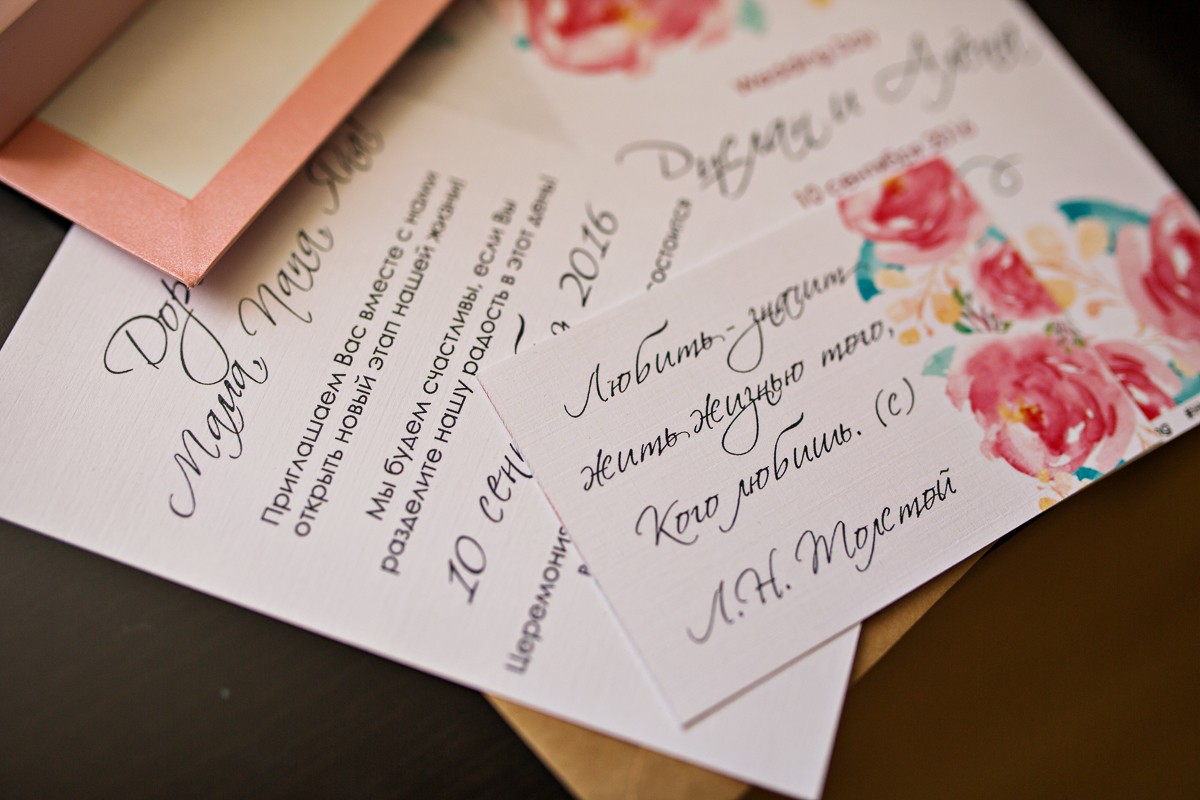 Wedding Day
Руслан и
10 сентября 2016
Мама, Папа
Приглашаем Вас вместе с нами
открыть новый этап нашей жизни!
Мы будем счастливы, если Вы
разделите нашу радость в этот день!
10 2016
Церемония
состоится
Любить - значит
жить жизнью того,
Кого любишь. (с)
Л.Н. Толстой